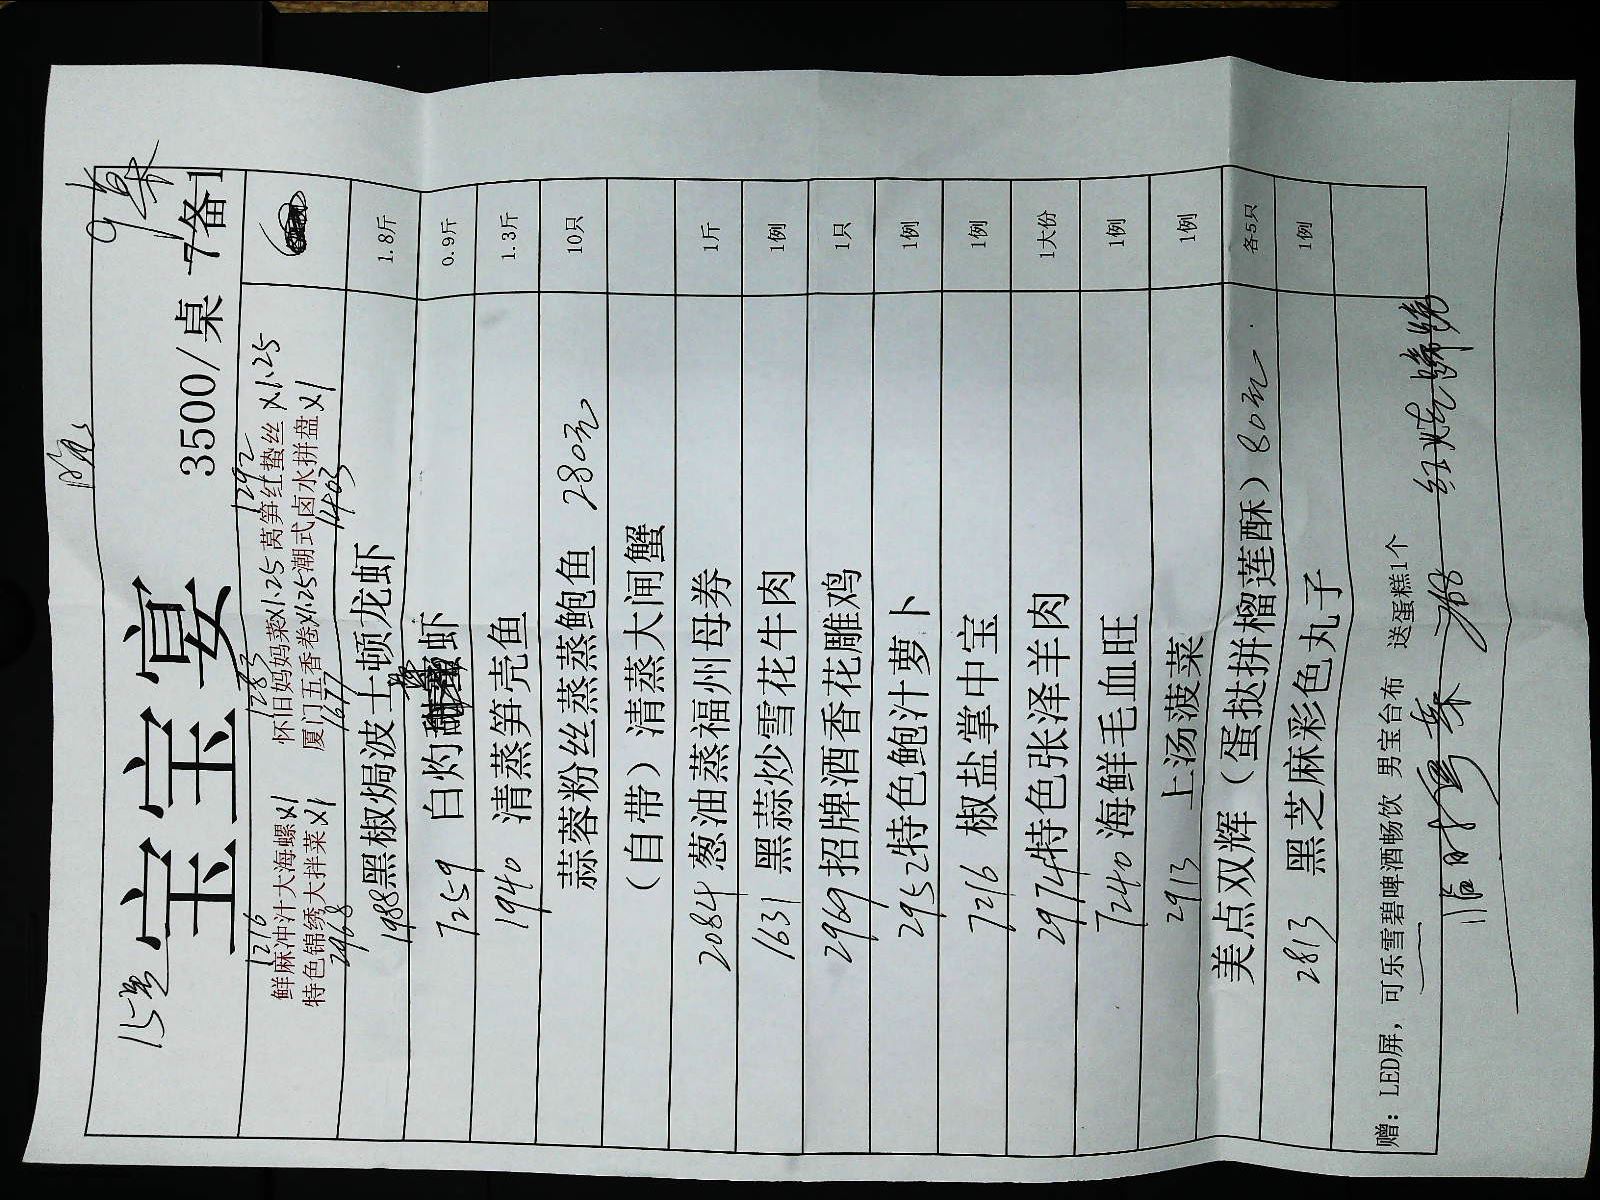 宝宝宴
3500/桌 7备1
9桌
1216 1283 1292
鲜麻冲汁大海螺X1 怀旧妈妈菜X1.25 莴笋红蛰丝X1.25
特色锦绣大拌菜X1 厦门五香卷X1.25 潮式卤水拼盘X1
2968 1677 1403
1988 黑椒焗波士顿龙虾 1.8斤
7259 白灼 虾 0.9斤
1940 清蒸笋壳鱼 1.3斤
蒜蓉粉丝蒸蒸鲍鱼 280元 10只
（自带）清蒸大闸蟹
2084 葱油蒸福州母券 1斤
1631 黑蒜炒雪花牛肉 1例
2969 招牌酒香花雕鸡 1只
2952 特色鲍汁萝卜 1例
7216 椒盐掌中宝 1例
2974 特色张泽羊肉 1大份
7240 海鲜毛血旺 1例
2913 上汤菠菜 1例
美点双辉（蛋挞拼榴莲酥）80元 各5只
2813 黑芝麻彩色丸子 1例
赠：LED屏，可乐雪碧啤酒畅饮 男宝台布 送蛋糕1个
临时 桌 红烧